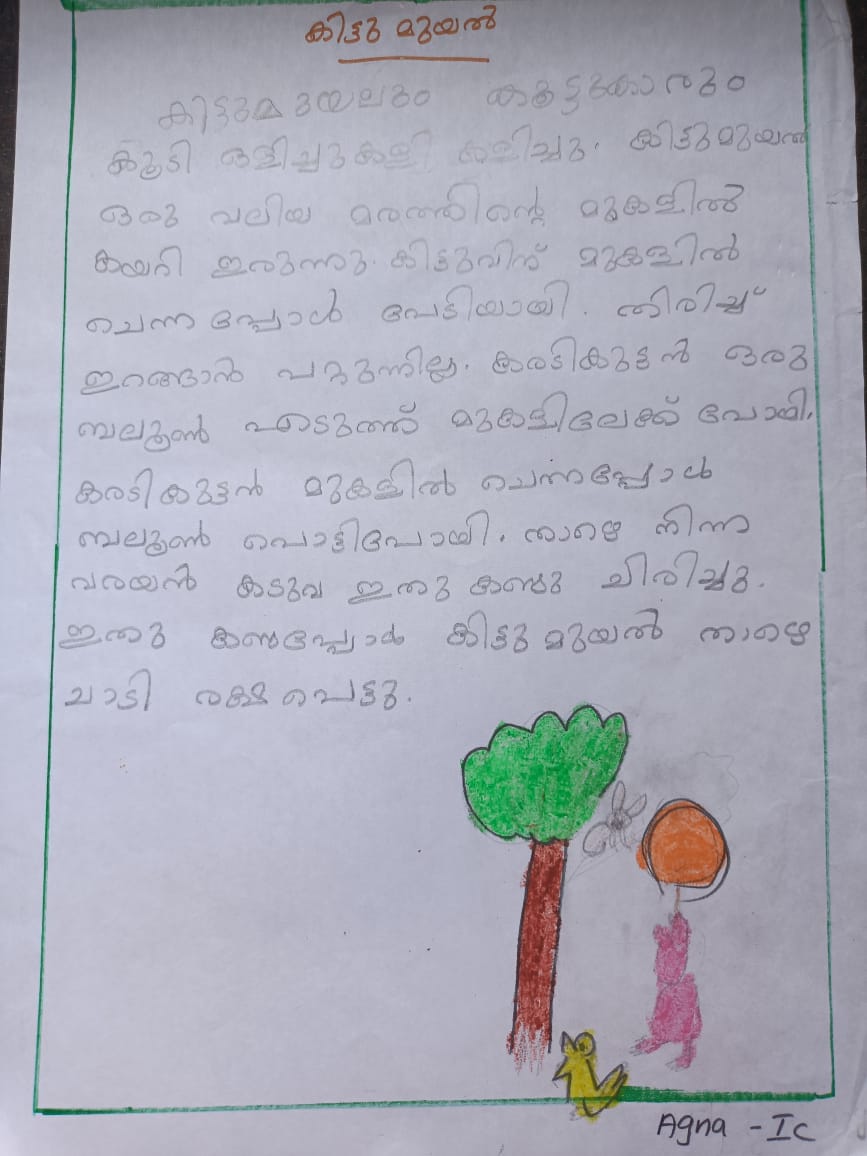 കിട്ടു മുയൽ
കിട്ടുമുയലും കൂട്ടുകാരും
കൂടി ഒളിച്ചുകളി കളിച്ചു. കിട്ടുമുയൽ
ഒരു വലിയ മരത്തിന്റെ മുകളിൽ
കയറി ഇരുന്നു. കിട്ടുവിന് മുകളിൽ
ചെന്നപ്പോൾ പേടിയായി. തിരിച്ച്
ഇറങ്ങാൻ പറ്റുന്നില്ല. കരടികുട്ടൻ ഒരു
ബലൂൺ എടുത്ത് മുകളിലേക്ക് പോയി.
കരടികുട്ടൻ മുകളിൽ ചെന്നപ്പോൾ
ബലൂൺ പൊട്ടിപോയി. താഴെ നിന്ന
വരയൻ കടുവ ഇതു കണ്ടു ചിരിച്ചു.
ഇതു കണ്ടപ്പോൾ കിട്ടു മുയൽ താഴെ
ചാടി രക്ഷപെട്ടു.
Agna - Ic